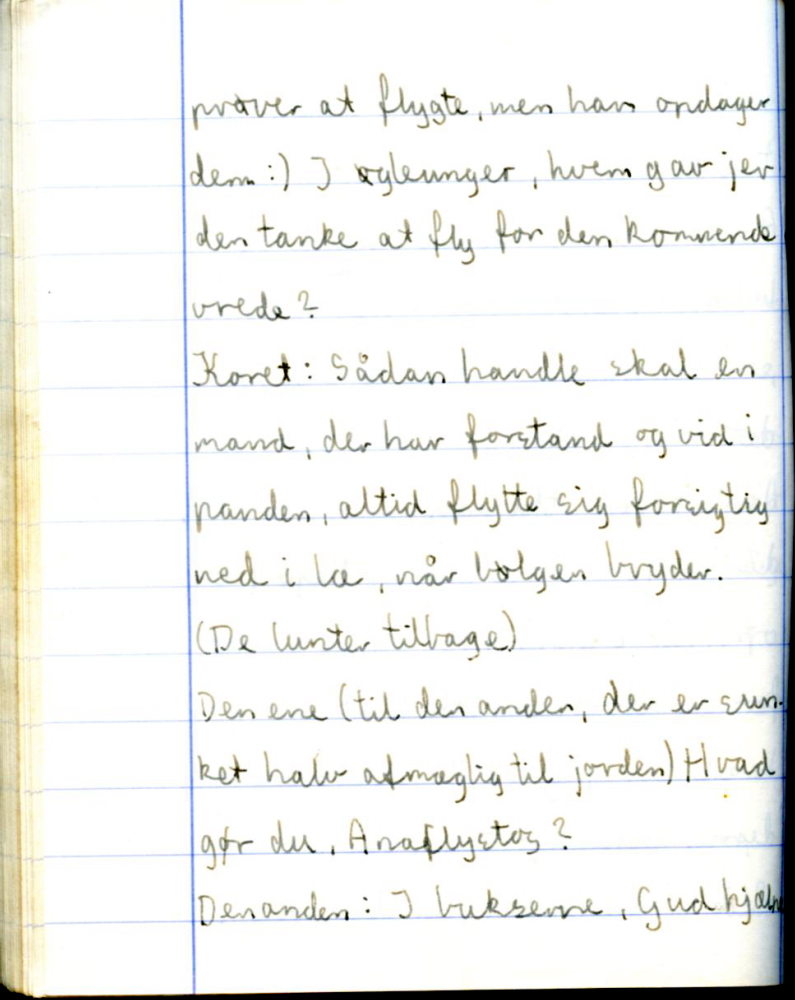 prøver at flygte, men han opdager
dem :) I øgleunger, hvem gav jer
den tanke at fly for den kommende
vrede?
Koret: Sådan handle skal en
mand, der har forstand og vid i
panden, altid flytte sig forsigtig
ned i læ, når bølgen bryder.
(De lunter tilbage)
Den ene (til den anden, der er sun-
ket halv afmægtig til jorden) Hvad
gør du, Anaflystos?
Den anden: I bukserne, Gud hjælpe